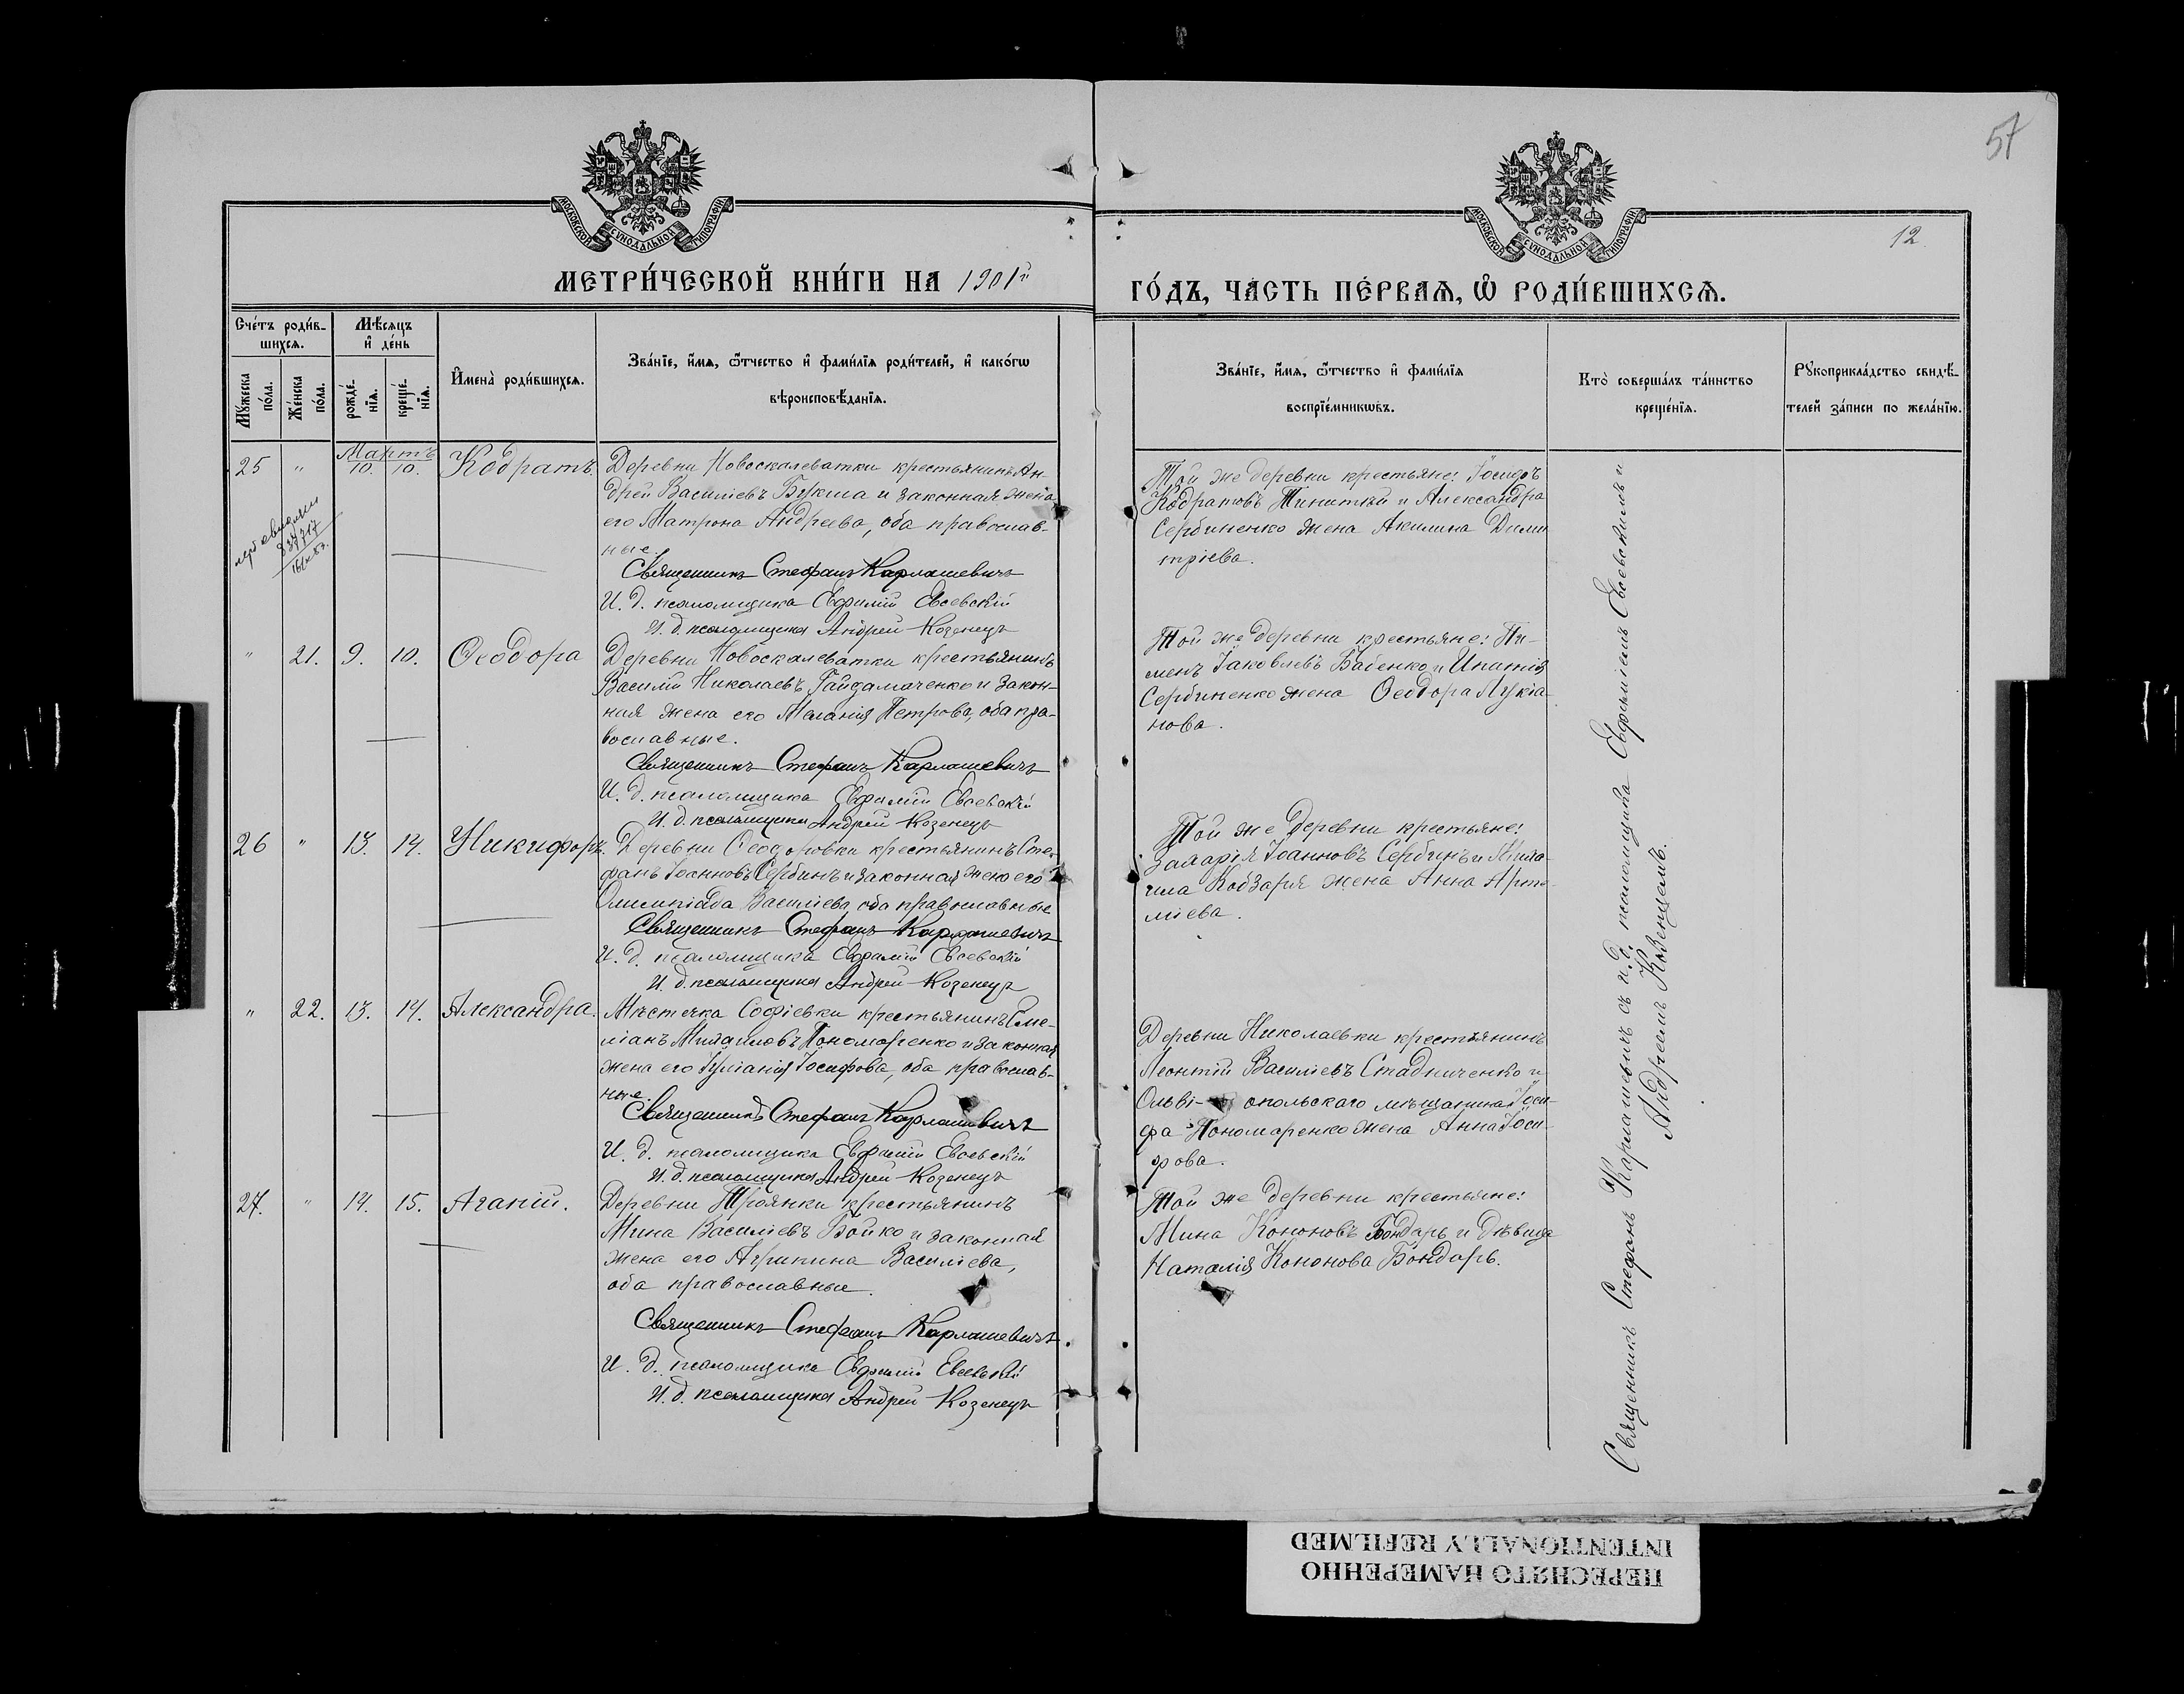 57
12.
МОСКОВСКОЙ СѴНОДАЛЬНОЙ ТИПОГРАФІИ
МОСКОВСКОЙ СѴНОДАЛЬНОЙ ТИПОГРАФІИ
МЕТРИ́ЧЕСКОЙ КНИ́ГИ НА 1901й
ГО́ДЪ, ЧА́СТЬ ПЕ́РВАѦ, Ѽ РОДИ́ВШИХСѦ.
Сче́тъ роди́в-
шихсѧ.
Мꙋ́жеска
по́ла.
Же́нска
по́ла.
Мѣ́сѧцъ
и҆ де́нь
рожде́-
нїѧ.
креще́-
нїѧ.
И҆мена̀ роди́вшихсѧ.
Зва́нїе, и҆́мѧ, ѻ҆́тчество и҆ фами́лїѧ роди́телей, и҆ како́гѡ
вѣроисповѣ́данїѧ.
Зва́нїе, и҆́мѧ, ѻ҆́тчество и҆ фами́лїѧ
воспрїе́мникѡвъ.
Кто̀ соверша́лъ та́инство
креще́нїѧ.
Рꙋкоприкла́дство свидѣ́-
телей за́писи по жела́нїю.
Мартъ
25 " 10. 10. Кодратъ.
Деревни Новоскалеватки крестьянинъ Ан-
дрей Василіевъ Букша и законная жена
его Матрона Андреева, оба православ-
ные.
Священникъ Стефанъ Карлашевичъ
И. д. псаломщика Евфимій Евсевскій
И. д. псаломщика Андрей Козенецъ
Той же деревни крестьяне: Іосифъ
Кодратовъ и Александра
Сербиненко жена Акилина Дими
тріева.
" 21. 9. 10. Ѳеодора
Деревни Новоскалеватки крестьянинъ
Василій Николаевъ Гайдамаченко и закон-
ная жена его Меланія Петрова, оба пра-
вославные.
Священникъ Стефанъ Карлашевичъ
И. д. псаломщика Евфимій Евсевскій
И. д. псаломщика Андрей Козенецъ
Той же деревни крестьяне: Пи-
менъ Іаковлевъ Бабенко и Ипатія
Сербиненко жена Ѳеодора Лукіа-
нова.
26 " 13. 14. Никифоръ.
Деревни Ѳеодоровки крестьянинъ Сте-
фанъ Іоанновъ Сербинъ и законная жена его
Олимпіада Василіева, оба православные
Священникъ Стефанъ Карлашевичъ
И. д. псаломщика Евфимій Евсевскій
И. д. псаломщика Андрей Козенецъ
Той же деревни крестьяне:
Захарія Іоанновъ Сербинъ и Миха-
ила Кобзаря жена Анна
міева.
" 22. 13. 14. Александра.
Мѣстечка Софіевки крестьянинъ Еме-
ліанъ Михаиловъ Пономаренко и законная
жена его Іуліанія Іосифова, оба православ-
ные.
Священникъ Стефанъ Карлашевичъ
И. д. псаломщика Евфимій Евсевскій
И. д. псаломщика Андрей Козенецъ
Деревни Николаевки крестьянинъ
Леонтій Василіевъ Стадниченко и
Ольві- опольскаго мѣщанина Іоси-
фа Пономаренко жена Анна Іоси-
фова.
27. " 14. 15. Агапій.
Деревни Троянки крестьянинъ
Мина Василіевъ Бойко и законная
жена его Агрипина Василіева,
оба православные.
Священникъ Стефанъ Карлашевичъ
И. д. псаломщика Евфимій Евсевскій
И. д. псаломщика Андрей Козенецъ
Той же деревни крестьяне:
Мина Кононовъ Бондарь и дѣвица
Наталія Кононова Бондарь.
Священникъ Стефанъ Карлашевичъ съ и. д. псаломщика Евфиміемъ Евсевскимъ и
Андреемъ Козенцемъ.
ПЕРЕСНЯТО НАМЕРЕННО
INTENTIONALLY REFILMED